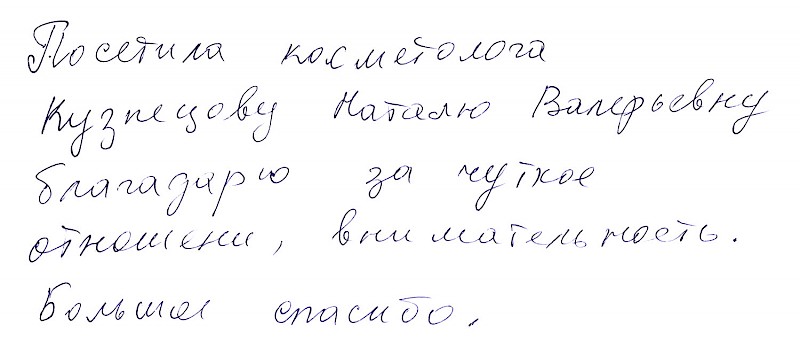 Посетила косметолога
Кузнецову Наталю Валерьевну
благадарю за чуткое
отношени, внимательность.
Большое спасибо.